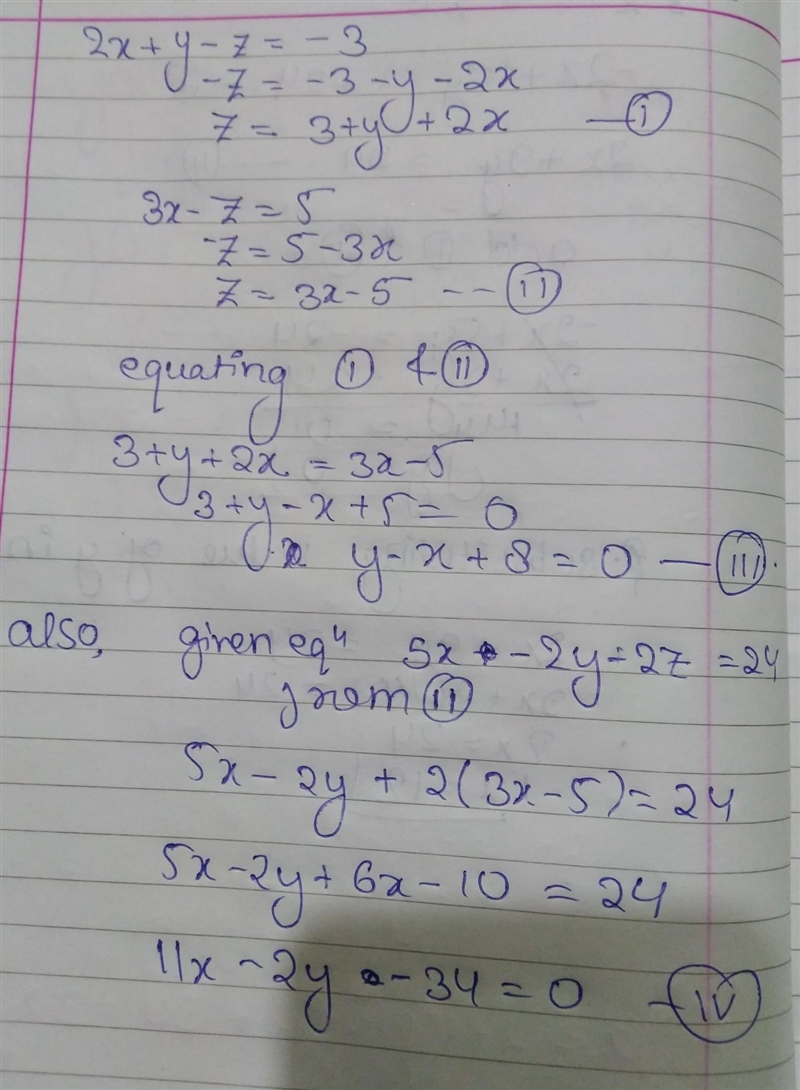 2x + y - z = -3
-z = -3 - y - 2x
z = 3 + y + 2x — (I)
3x - z = 5
-z = 5 - 3x
z = 3x - 5 -- (II)
equating (I) & (II)
3 + y + 2x = 3x - 5
3 + y - x + 5 = 0
y - x + 8 = 0 — (III).
also, given eqⁿ 5x - 2y + 2z = 24
from (II)
5x - 2y + 2(3x - 5) = 24
5x - 2y + 6x - 10 = 24
11x - 2y - 34 = 0 — (IV)